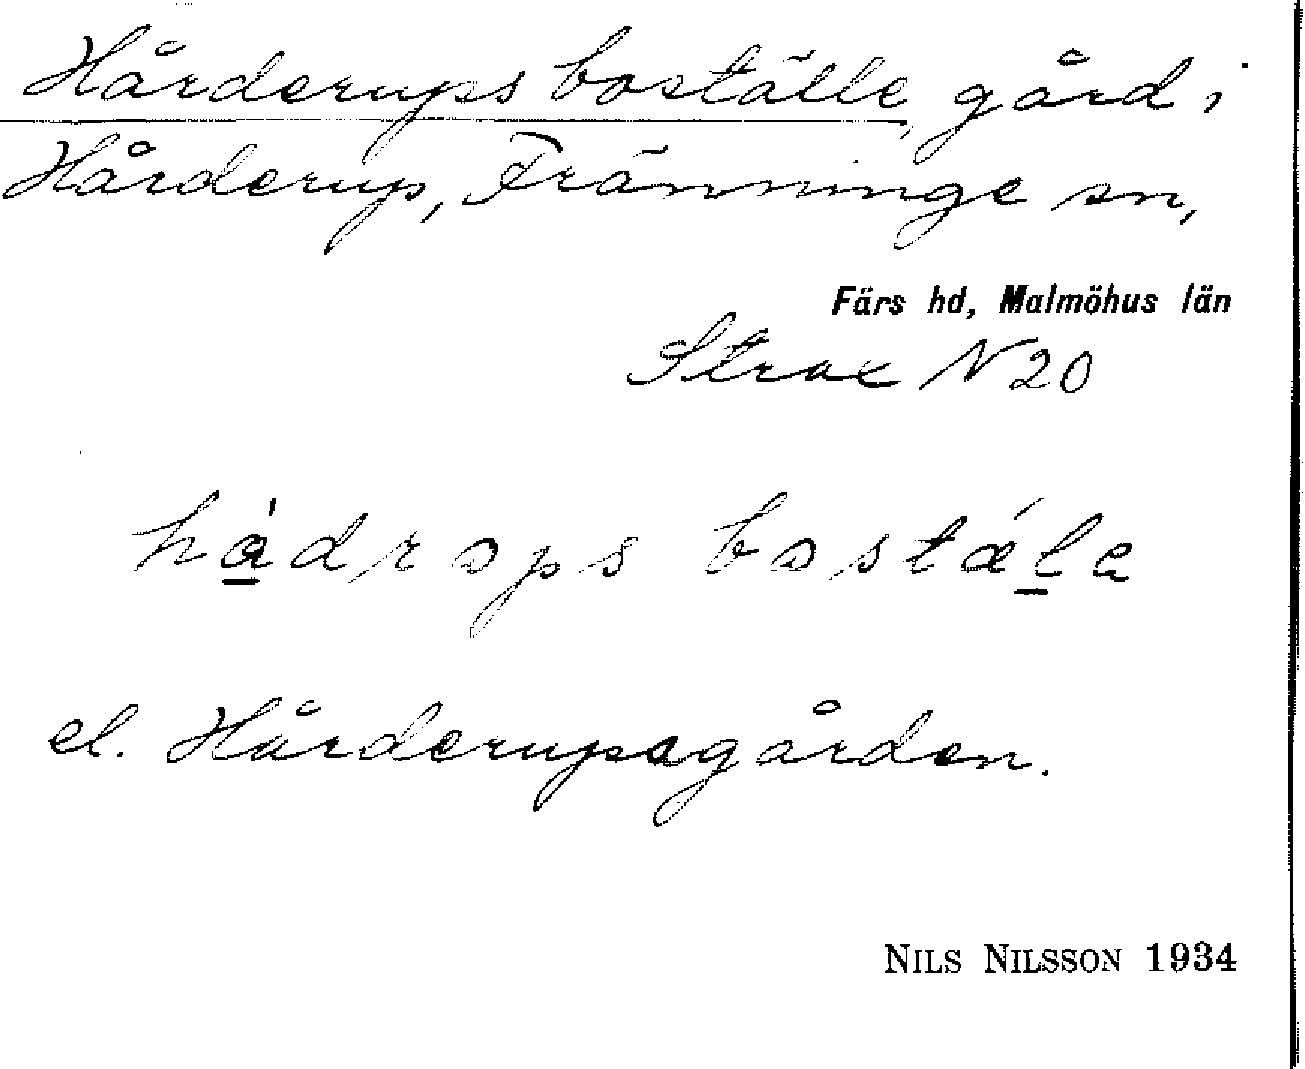 Hårderups boställe, gård i
Hårderup, Fränninge sn,
Färs hd, Malmöhus län
Strax N 20
hådrops bostæla
el. Hårderupsgården.
NILS NILSSON 1934